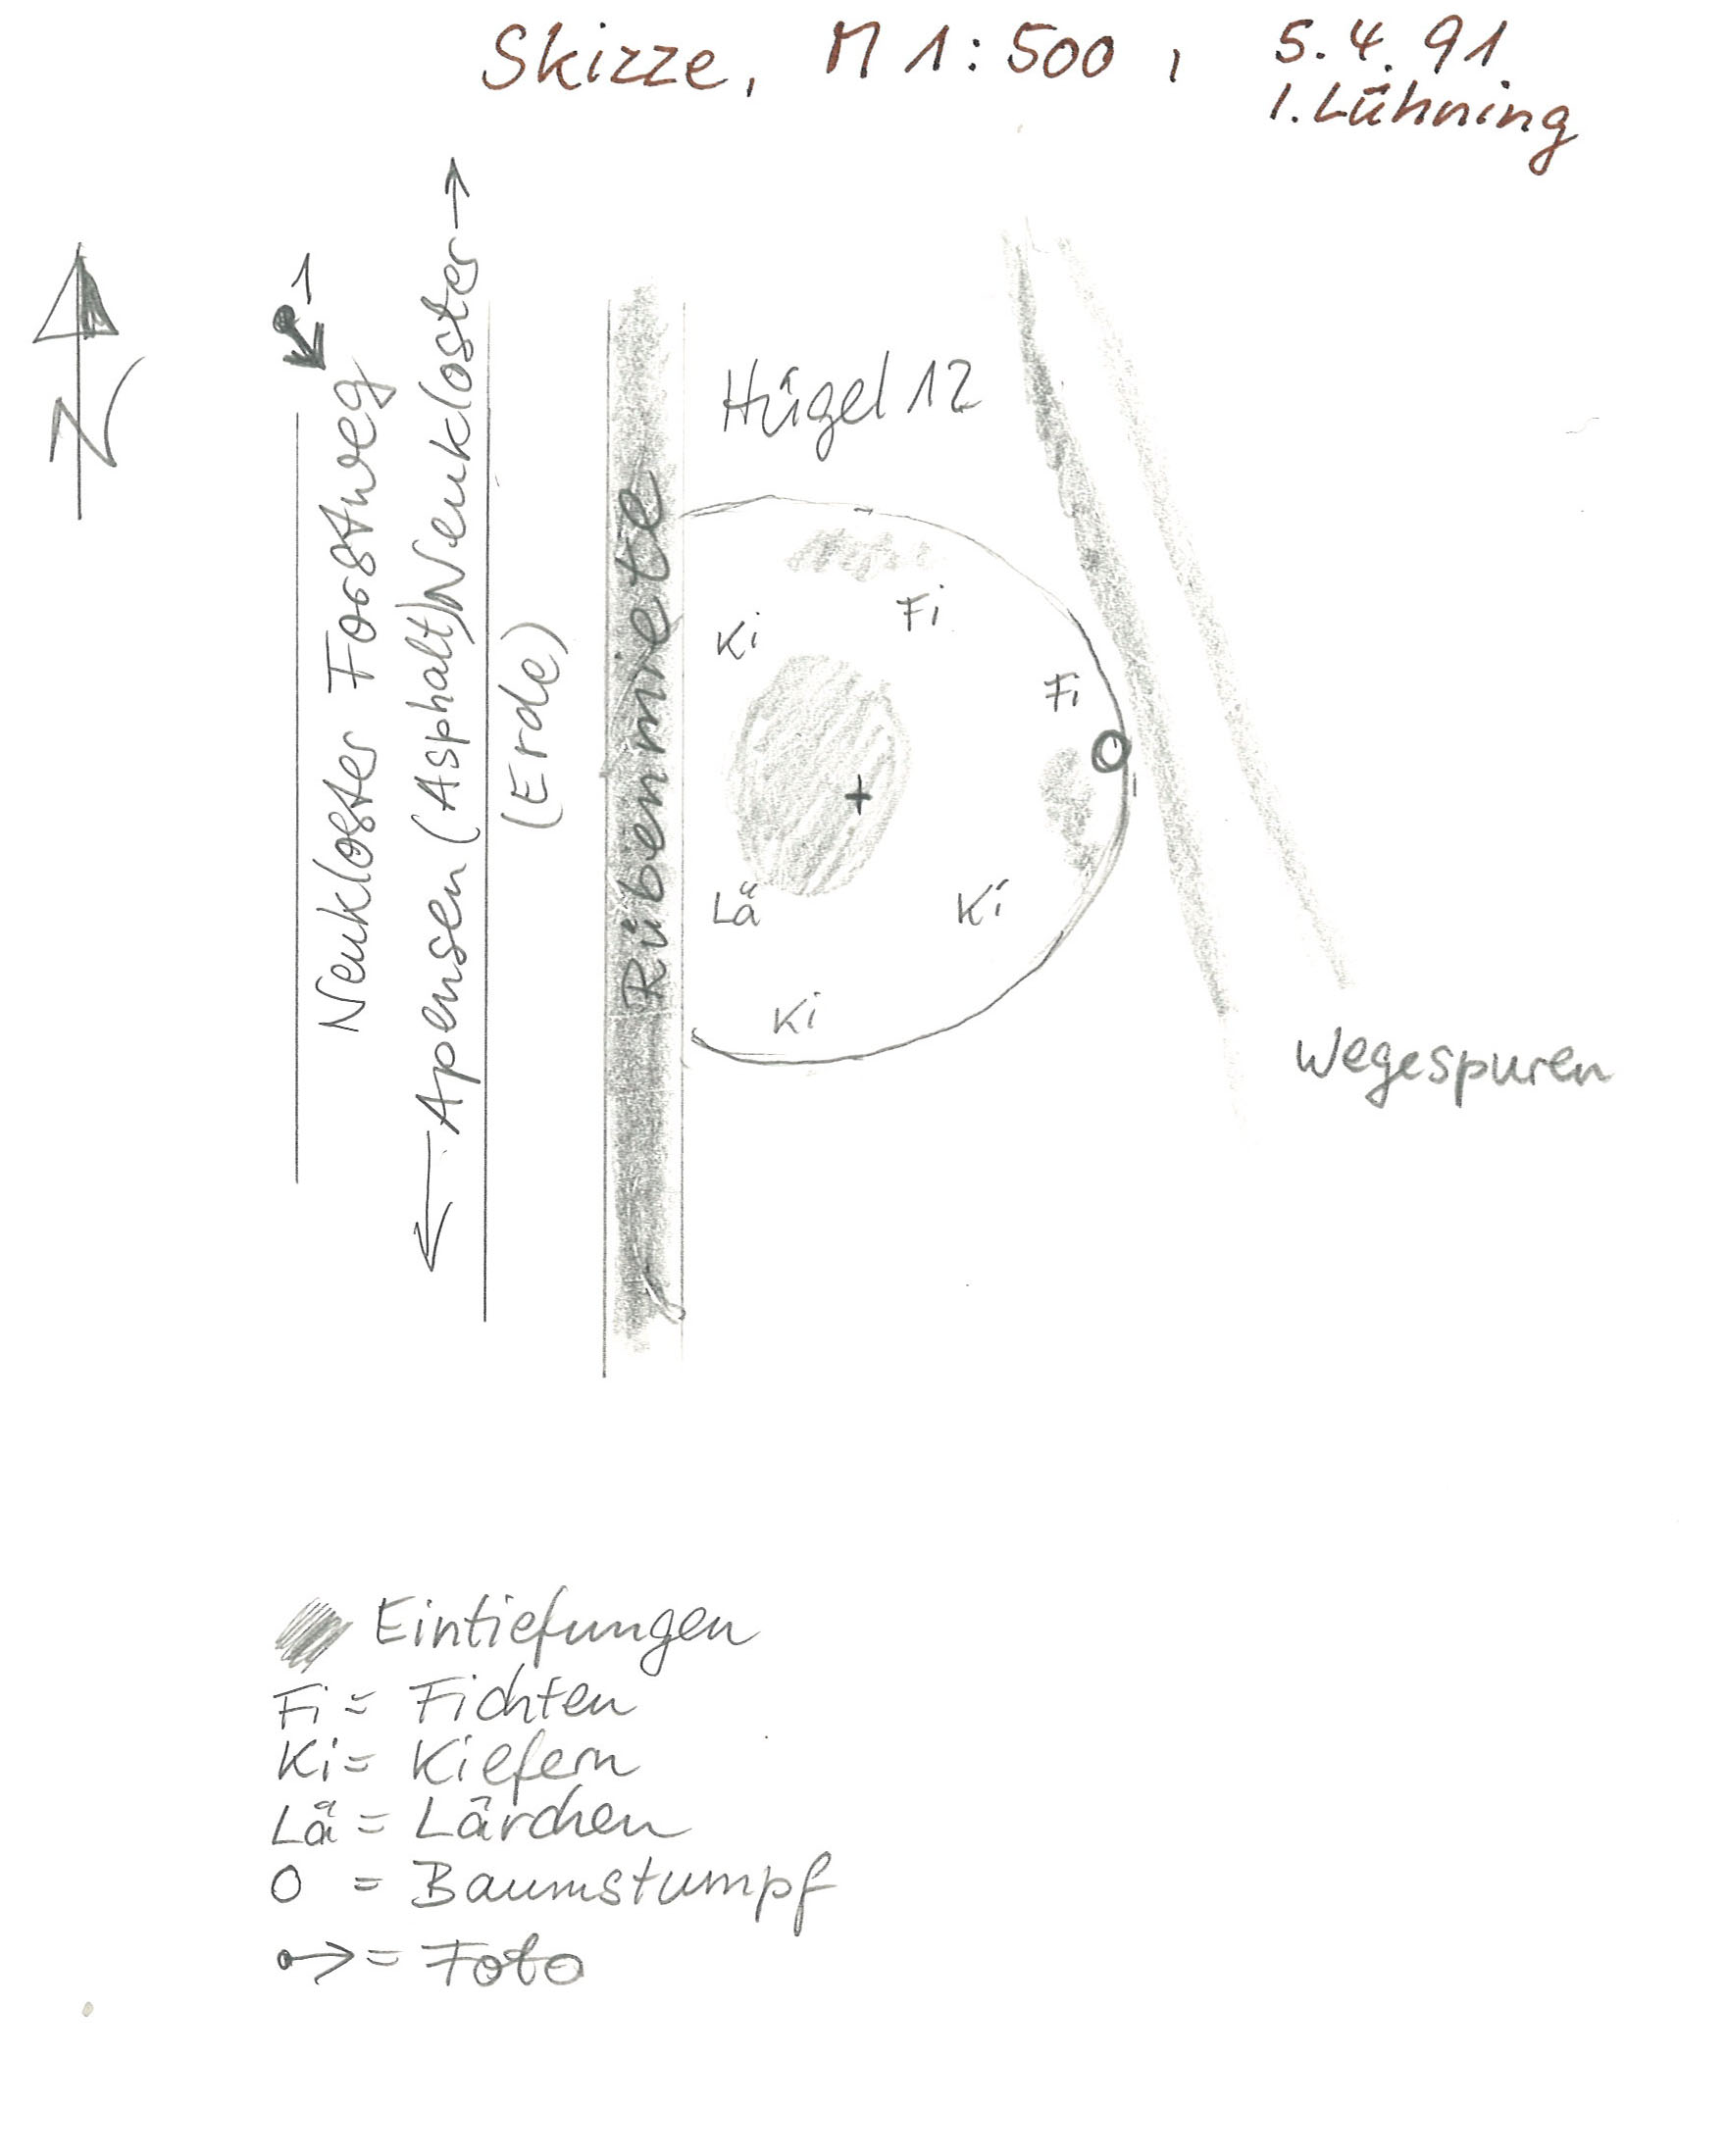 Skizze, M 1:500, 5.4.91.
I. Lühning
N
1
Neukloster Forstweg
← Apensen (Asphalt) Neukloster →
(Erde)
Rübenmiete
Hügel 12
Fi
Ki
Fi
+
Lä
Ki
Ki
Wegespuren
Eintiefungen
Fi = Fichten
Ki = Kiefern
Lä = Lärchen
O = Baumstumpf
•→ = Foto